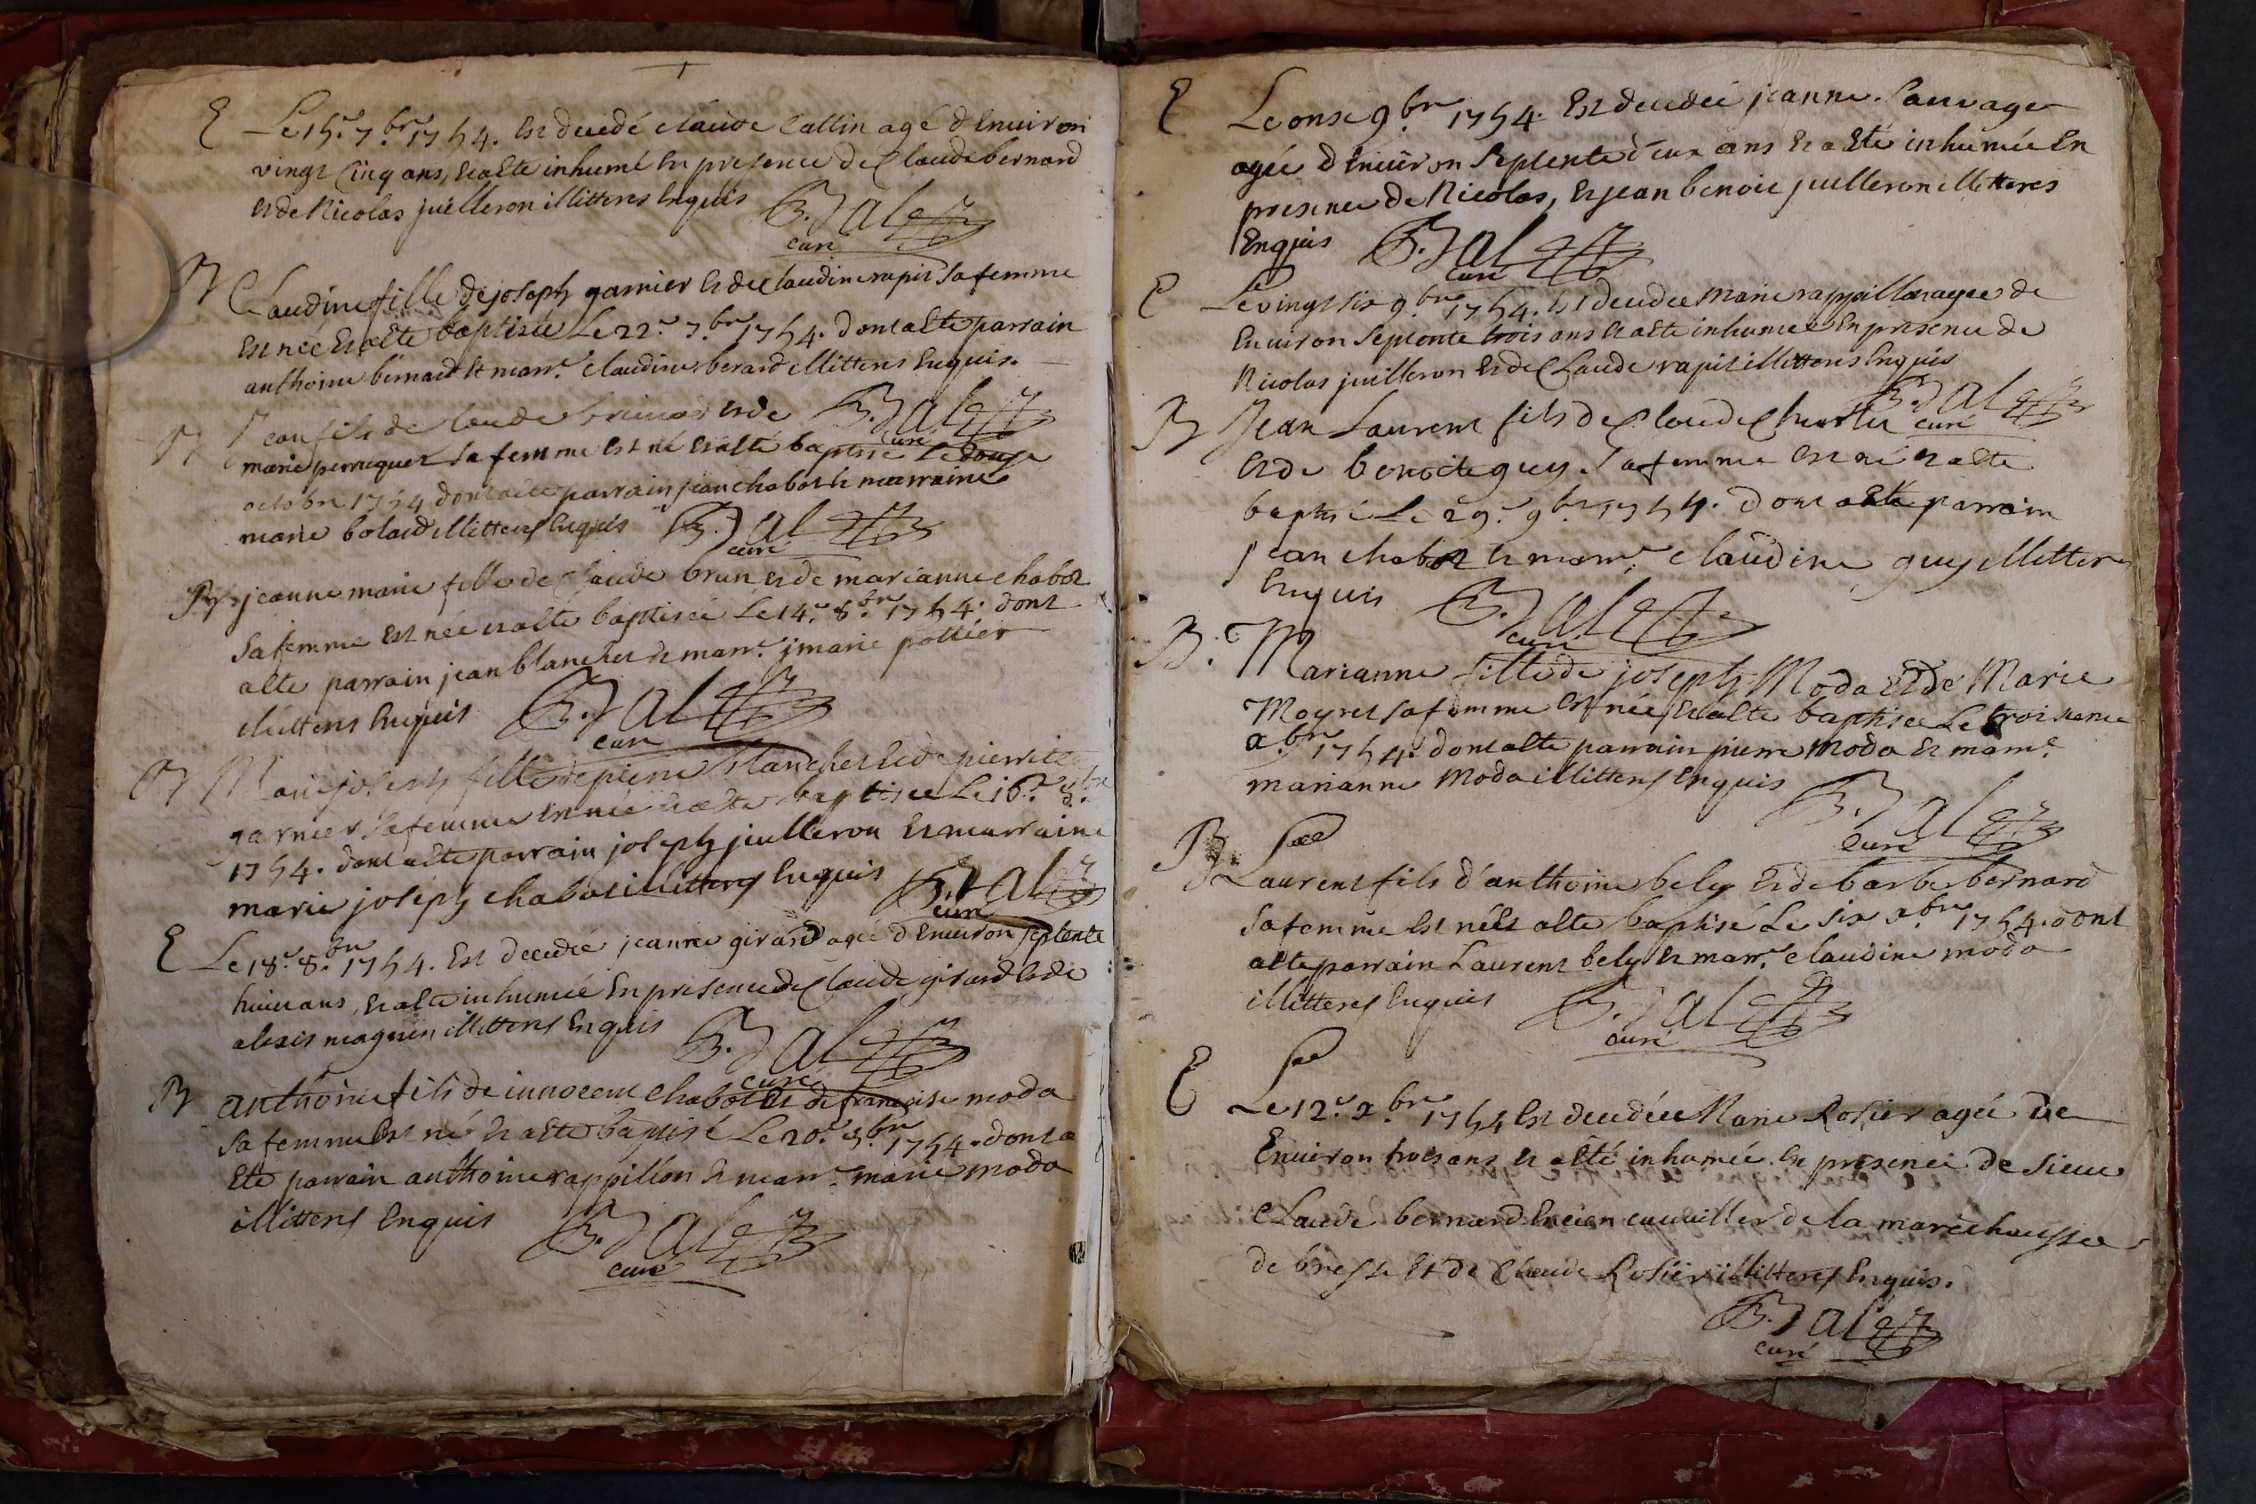 E Le 15e 7bre 1754. Est decedé claude Callin agé d'Environ
vingt Cinq ans, et a Esté inhumé En presence de Claude bernard
et de Nicolas juilleron illitteres Enquis
curé
B Claudine fille de joseph garnier et de Claudine rapis sa femme
Est née Et a esté baptisée Le 22e 7bre 1754. dont a Esté parrain
anthoine bernard et marr.e Claudine berard illitteres Enquis.
B Jean fils de Claude et de
marie perruquet sa femme est né et a esté baptisé Le douze
octobre 1754 dont a esté parrain jean chabot et marraine
marie bolard illitteres Enquis
curé
B jeanne marie fille de Claude brun et de marianne chabot
sa femme est née et a esté baptisée Le 14e 8bre 1754. dont
a esté parrain jean blanchet et marr.e jmarie pottier
illitteres Enquis
curé
B Marie joseph fille de pierre blanchet et de pierrete
garnier sa femme est née et a esté baptisée Le 16e 8bre
1754. dont a esté parrain joseph juilleron et marraine
marie joseph chabot illitteres Enquis
curé
E Le 18e 8bre 1754. Est decedée jeanne girard agée d'Environ septente
huit ans, et a esté inhumée En presence de Claude girard et de
alexis magnin illitteres Enquis
curé
B anthoine fils de innocent chabot et de francoise moda
sa femme est né et a esté baptisé Le 20e 8bre 1754. dont a
Eté parrain anthoine rappillon et marr.e marie moda
illitteres Enquis
curé
E Le onse 9bre 1754. Est decedée jeanne Sauvage
agée d'Environ Septente deux ans et a Esté inhumée En
presence de Nicolas, et jean benoit juilleron illitteres
Enquis
curé
E Le vingt six 9bre 1754. est decedée marie rappillon agée de
Environ Septente trois ans et a esté inhumée En presence de
Nicolas juilleron et de Claude rapis illitteres Enquis
curé
B Jean Laurent fils de Claude
et de benoite guy sa femme est né et a esté
baptisé Le 29e 9bre 1754. dont a esté parrain
jean chabot et marr.e claudine guy illitteres
Enquis
curé
B. Marianne fille de joseph Moda et de Marie
Moyret sa femme est née et a esté baptisée Le troisieme
xbre 1754. dont a esté parrain pierre moda et marr.e
marianne moda illitteres Enquis
curé
B. Laurent fils d'anthoine bely et de barbe bernard
sa femme est né et a esté baptisé Le six xbre 1754. dont
a esté parrain Laurent bely et marr.e claudine moda
illitteres Enquis
curé
E Le 12e xbre 1754 est decedée Marie Rosier agée de
Environ trois ans et a esté inhumée en presence de sieur
Claude bernard Encien cavaillier de la marechaussée
de bresse et de Claude Rosier illitteres Enquis.
curé